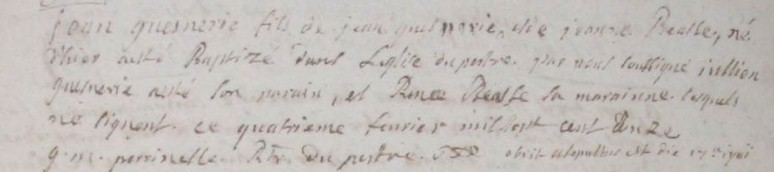 jean quesnerie fils de jean quesnerie, et de jeanne Bealle, né
d'hier a esté Baptizé dans L'eglise du pertre par nous soussigné jullien
quesnerie a esté son parain, et Renee Bealle sa marainne lesquels
ne signent. ce quatrieme fevrier mil sept cent Unze
g. m. perrinelle. Ptr. du pertre. obiit et sepultus est die